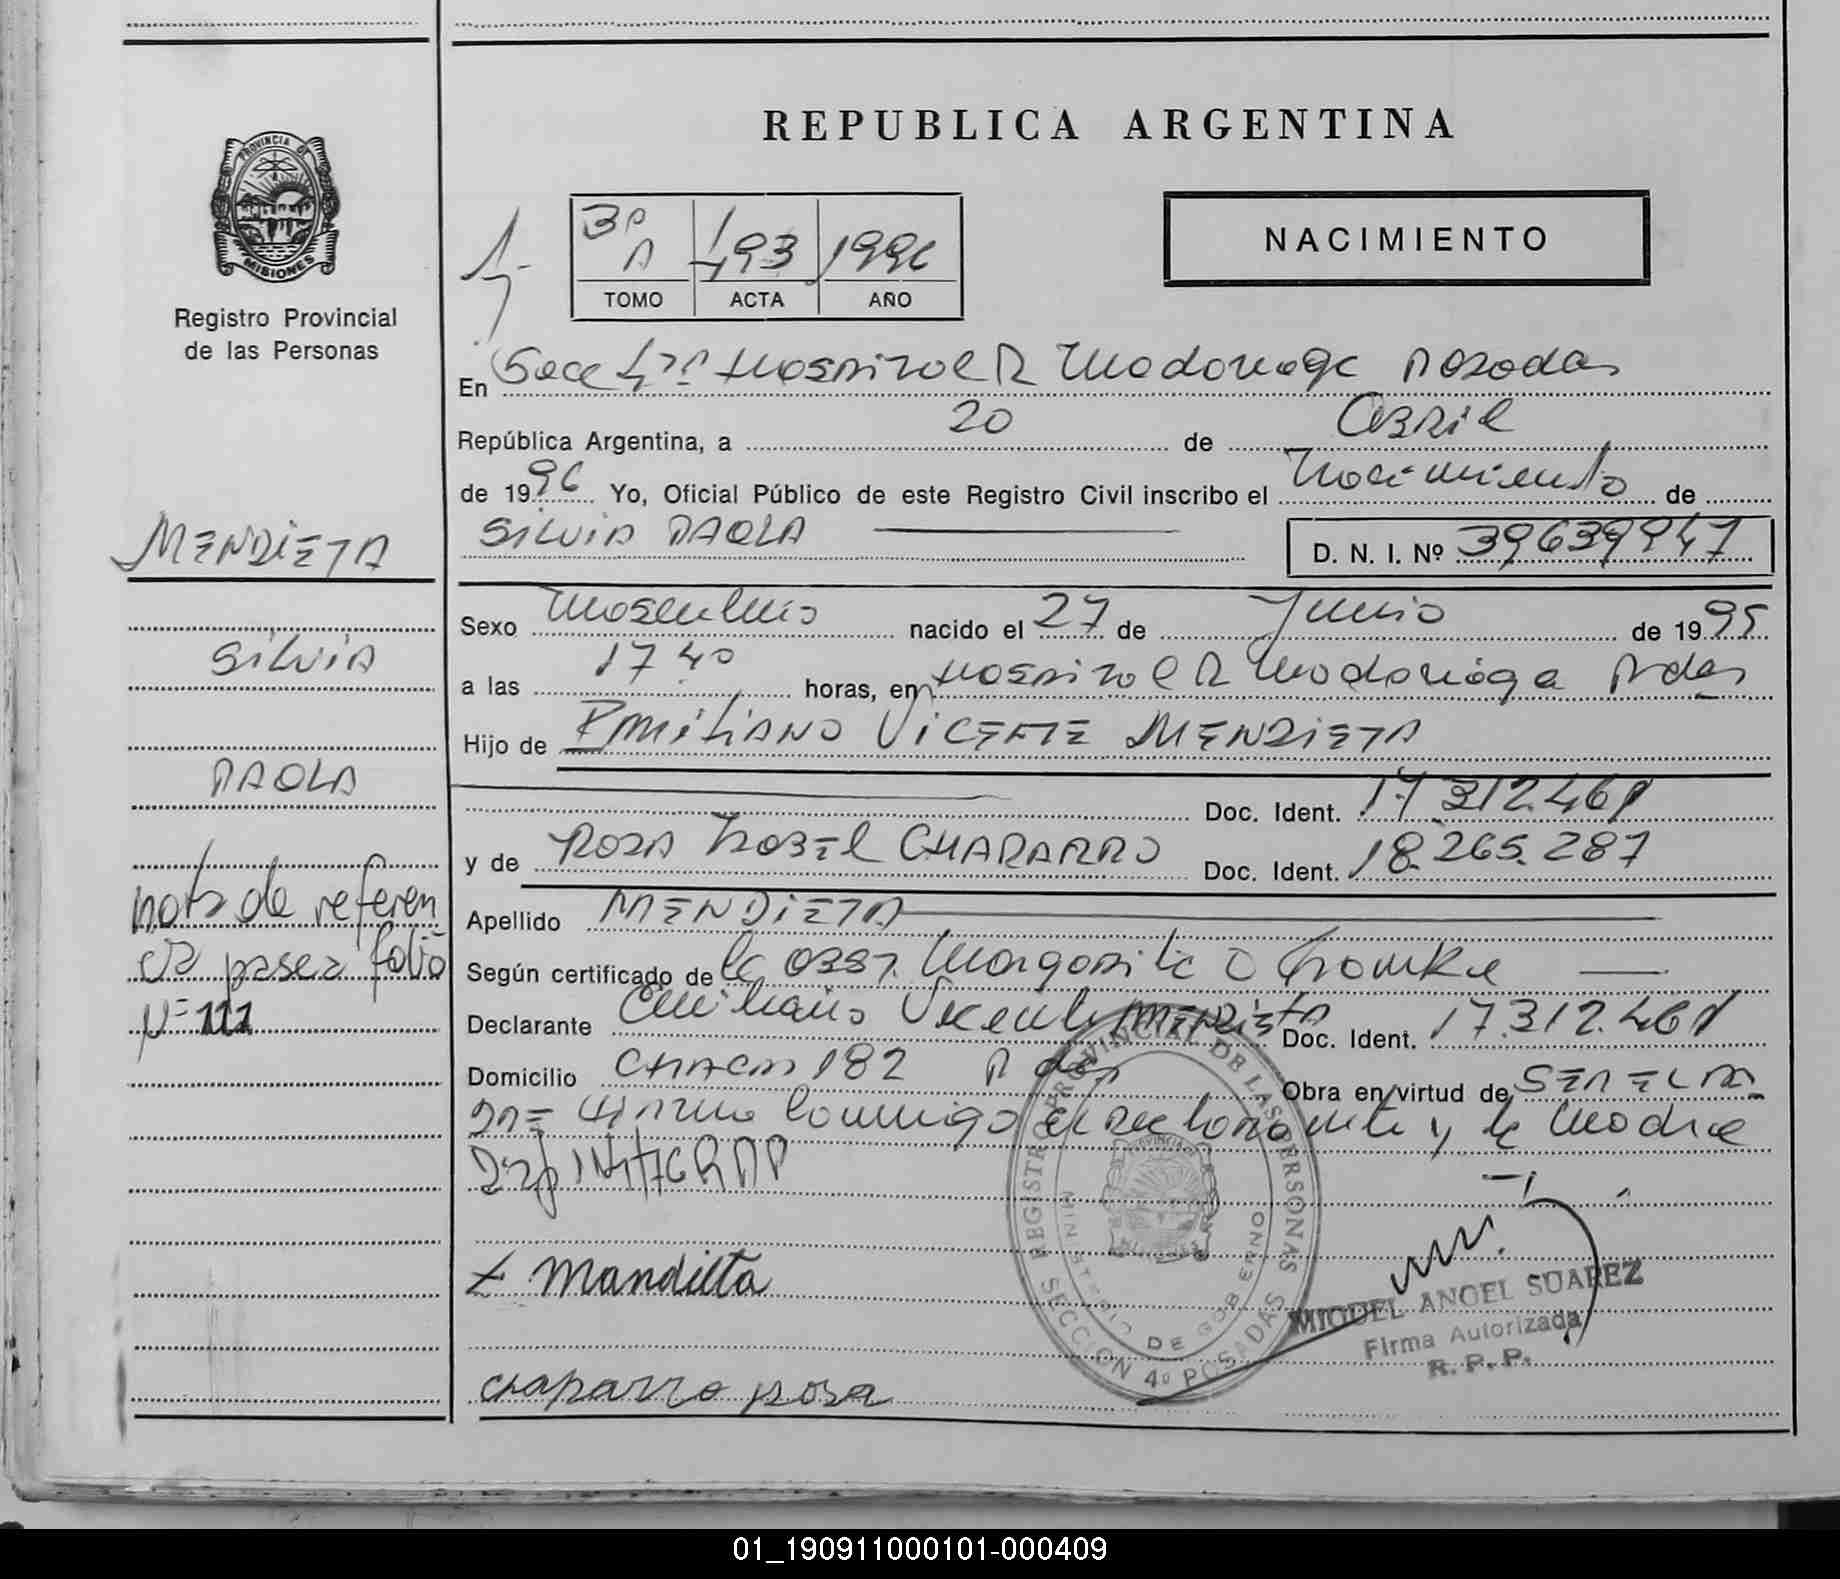 REPUBLICA ARGENTINA
PROVINCIA DE
MISIONES
Registro Provincial
de las Personas
3º A 493 1996
TOMO ACTA AÑO
NACIMIENTO
En Secc 4ta Hospital R Madariaga Posadas
República Argentina, a 20 de Abril
de 1996 Yo, Oficial Público de este Registro Civil inscribo el Nacimiento de
SILVIA PAOLA D. N. I. Nº 39639947
MENDIETA
SILVIA
PAOLA
nota de referen
cia pasea folio
Nº 111
Sexo Masculino nacido el 27 de Junio de 1995
a las 17 40 horas, en Hospital R Madariaga Pdas
Hijo de EMILIANO VICETE MENDIETA
Doc. Ident. 17.312.461
y de ROSA ISABEL CHAPARRO Doc. Ident. 18.265.287
Apellido MENDIETA
Según certificado de la Obst. Margarita O
Declarante Emiliano Vicente MENDIETA Doc. Ident. 17.312.461
Domicilio CHACO 182 Pdas Obra en virtud de SER EL PA
DRE firma conmigo el declarante y la madre
INTEGRAD
Mandieta
chaparro rosa
REGISTRO PROVINCIAL DE LAS PERSONAS
MINISTERIO DE GOBIERNO
SECCION 4º POSADAS
MIGUEL ANGEL SUAREZ
Firma Autorizada
R. P. P.
01_190911000101-000409